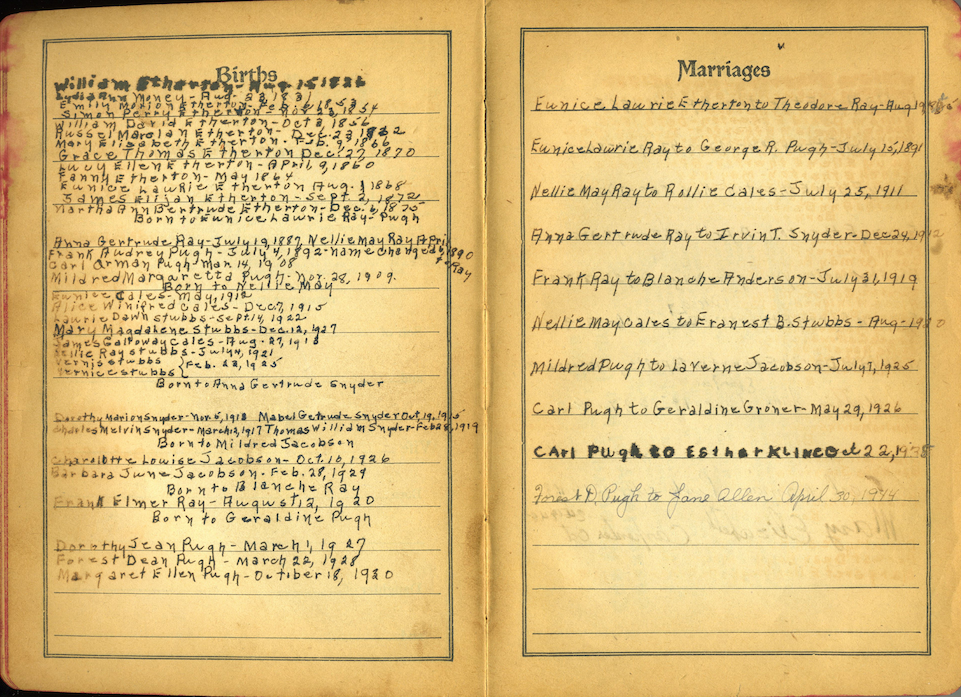 Births
William Etherton - Aug 15, 1826
Lydia Ann Money - Aug. 1831
Emily Morion Etherton - Feb. 1853
Simon Perry Etherton - Nov 1854
William David Etherton - Oct 2, 1856
Russel Marclan Etherton - Dec. 23, 1862
Mary Elisabeth Etherton - Feb. 9, 1866
Grace Thomas Etherton Dec. 27 1870
Lucy Ellen Etherton - April 9, 1860
Fanny Etherton - May 1864
Eunice Lawrie Etherton Aug. 1, 1868
James Elijah Etherton - Sept 2, 1872
Martha Ann Bertrude Etherton - Dec. 6, 1875
Born to Eunice Lawrie Ray - Pugh
Anna Gertrude Ray - July 19, 1887, Nellie May Ray April
Frank Audrey Pugh - July 4, 1892 - Name changed 1890
Carl Orman Pugh Mar 14, 1908 to Ray
Mildred Margaretta Pugh - Nov. 28, 1909.
Born to Nellie May
Eunice Cales - May, 1912
Alice Winifred Cales - Dec 7, 1915
Laurie Dawn Stubbs - Sept 14, 1922
Mary Magdalene Stubbs - Dec. 12, 1927
James Galloway Cales - Aug. 27, 1918
Nellie Ray Stubbs - July 4, 1921
Vernis Stubbs
Vernice Stubbs } Feb. 22, 1925
Born to Anna Gertrude Snyder
Dorothy Marion Snyder - Nov 5, 1913 Mabel Getrude Snyder Oct 19, 1915
Charles Melvin Snyder - March 12, 1917 Thomas William Snyder - Feb 28, 1919
Born to Mildred Jacobson
Charolotte Louise Jacobson - Oct. 10, 1926
Barbara June Jacobson - Feb. 28, 1929
Born to Blanche Ray
Frank Elmer Ray - August 12, 1920
Born to Geraldine Pugh
Dorothy Jean Pugh - March 1, 1927
Forest Dean Pugh - March 22, 1928
Margaret Ellen Pugh - October 18, 1930
Marriages
Eunice Lawrie Etherton to Theodore Ray - Aug
Eunice Lawrie Ray to George R. Pugh - July 15, 1891
Nellie May Ray to Rollie Cales - July 25, 1911
Anna Gertrude Ray to Irvin T. Snyder - Dec 24, 1912
Frank Ray to Blanche Anderson - July 31, 1919
Nellie May Cales to Eranest B. Stubbs - Aug - 1920
Mildred Pugh to LaVerne Jacobson - July 7, 1925
Carl Pugh to Geraldine Groner - May 29, 1926
CArl Pugh to Esther Kline Oct 22, 1938
Forest D. Pugh to Jane Allen April 30, 1944